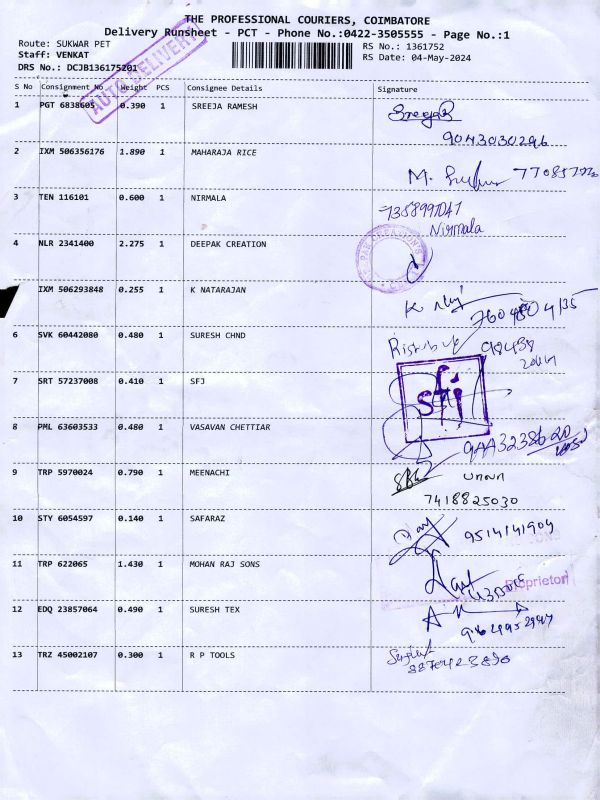 THE PROFESSIONAL COURIERS, COIMBATORE
Delivery Runsheet - PCT - Phone No.:0422-3505555 - Page No.:1
Route: SUKWAR PET
RS No.: 1361752
Staff: VENKAT
RS Date: 04-May-2024
DRS No.: DCJB136175201
AUTO DELIVERY
S No Consignment No Height PCS Consignee Details Signature
1 PGT 6838605 0.390 1 SREEJA RAMESH
9043030296
2 IXM 506356176 1.890 1 MAHARAJA RICE
M.
3 TEN 116101 0.600 1 NIRMALA
7358997047
Nirmala
4 NLR 2341400 2.275 1 DEEPAK CREATION
IXM 506293848 0.255 1 K NATARAJAN
6 SVK 60442080 0.480 1 SURESH CHND
7 SRT 57237008 0.410 1 SFJ
sfj
8 PML 63603533 0.480 1 VASAVAN CHETTIAR
9 TRP 5970024 0.790 1 MEENACHI
7418825030
10 STY 6054597 0.140 1 SAFARAZ
9514141909
11 TRP 622065 1.430 1 MOHAN RAJ SONS
Proprietor
12 EDQ 23857064 0.490 1 SURESH TEX
13 TRZ 45002107 0.300 1 R P TOOLS